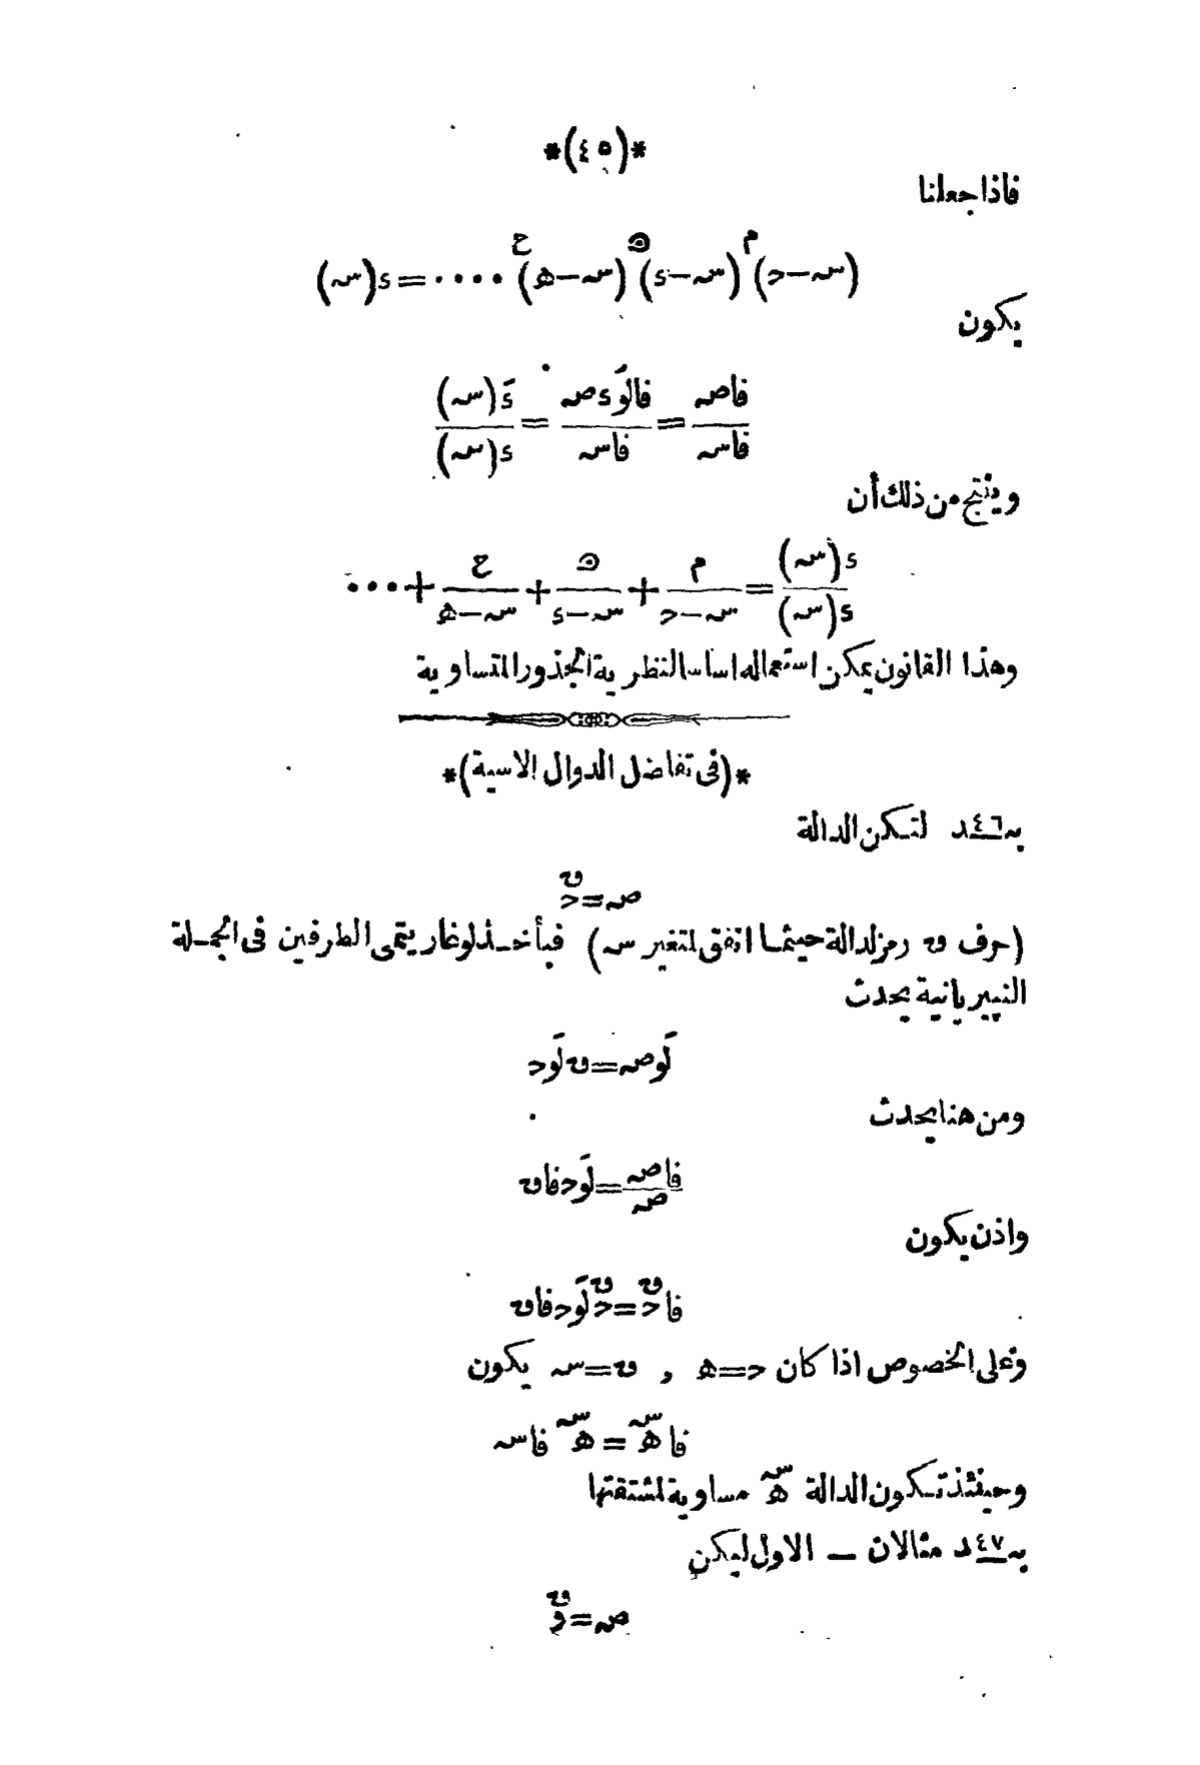 *(٤٥)*
فاذا جعلنا
(سـ−حـ)^م (سـ−د)^ں (سـ−هـ)^ع ····=د(سـ)
يكون
فاصـ/فاسـ = فالَود صـ/فاسـ = دَ(سـ)/د(سـ)
وينتج من ذلك أن
د(سـ)/د(سـ) = م/(سـ−حـ) + ں/(سـ−د) + ع/(سـ−هـ) + ···
وهذا القانون يمكن استعماله اساسا لنظرية الجذور المتساوية
*(فى تفاضل الدوال الاسية)*
بـ٤٦ـد لتكن الدالة
صـ=حـ^ں
(حرف ں رمز لدالة حيثما اتفق لمتغير سـ) فبأخذ لوغاريتمى الطرفين فى الجملة
النيبريانية يحدث
لَوصـ=ں لَوحـ
ومن هنا يحدث
فاصـ/صـ = لَوحـ فاں
واذن يكون
فاحـ^ں=حـ^ں لَوحـ فاں
وعلى الخصوص اذا كان حـ=هـ , ں=سـ يكون
فاهـ^سـ = هـ^سـ فاسـ
وحينئذ تكون الدالة هـ^سـ مساوية لمشتقتها
بـ٤٧ـد مثالان — الاول ليكن
صـ=و^ں